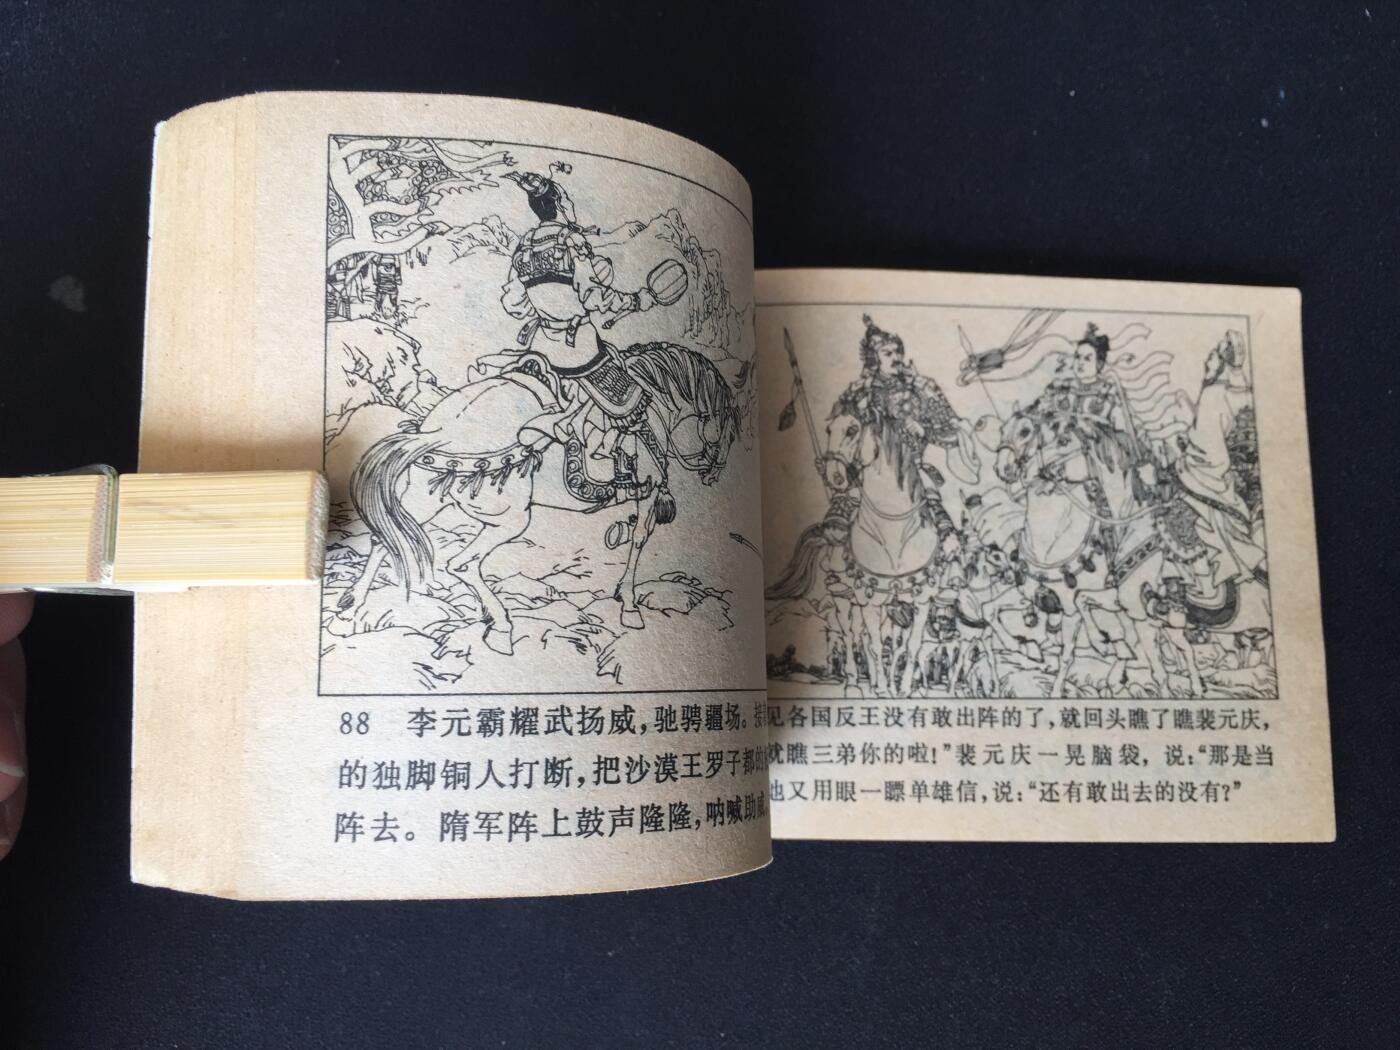 88 李元霸耀武扬威，驰骋疆场。
的独脚铜人打断，把沙漠王罗子都的
阵去。隋军阵上鼓声隆隆，呐喊助威
见各国反王没有敢出阵的了，就回头瞧了瞧裴元庆，
瞧三弟你的啦！”裴元庆一晃脑袋，说：“那是当
也又用眼一瞟单雄信，说：“还有敢出去的没有？”